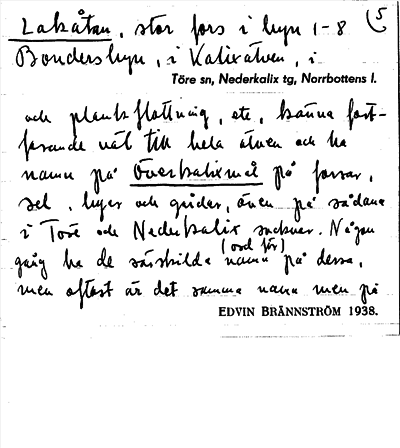 Lakåtan, stor fors i byn 1-8 (5
Bondersbyn, i Kalixälven, i
Töre sn, Nederkalix tg, Norrbottens l.
och plankflottning, etc, känna fort-
farande väl till hela älven och ha
namn på Överkalixmål på forsar,
sel, byar och grider, även på sådana
i Töre och Nederkalix socknar. Någon
gång ha de särskilda (ord för) namn på dessa,
men oftast är det samma namn men på
EDVIN BRÄNNSTRÖM 1938.